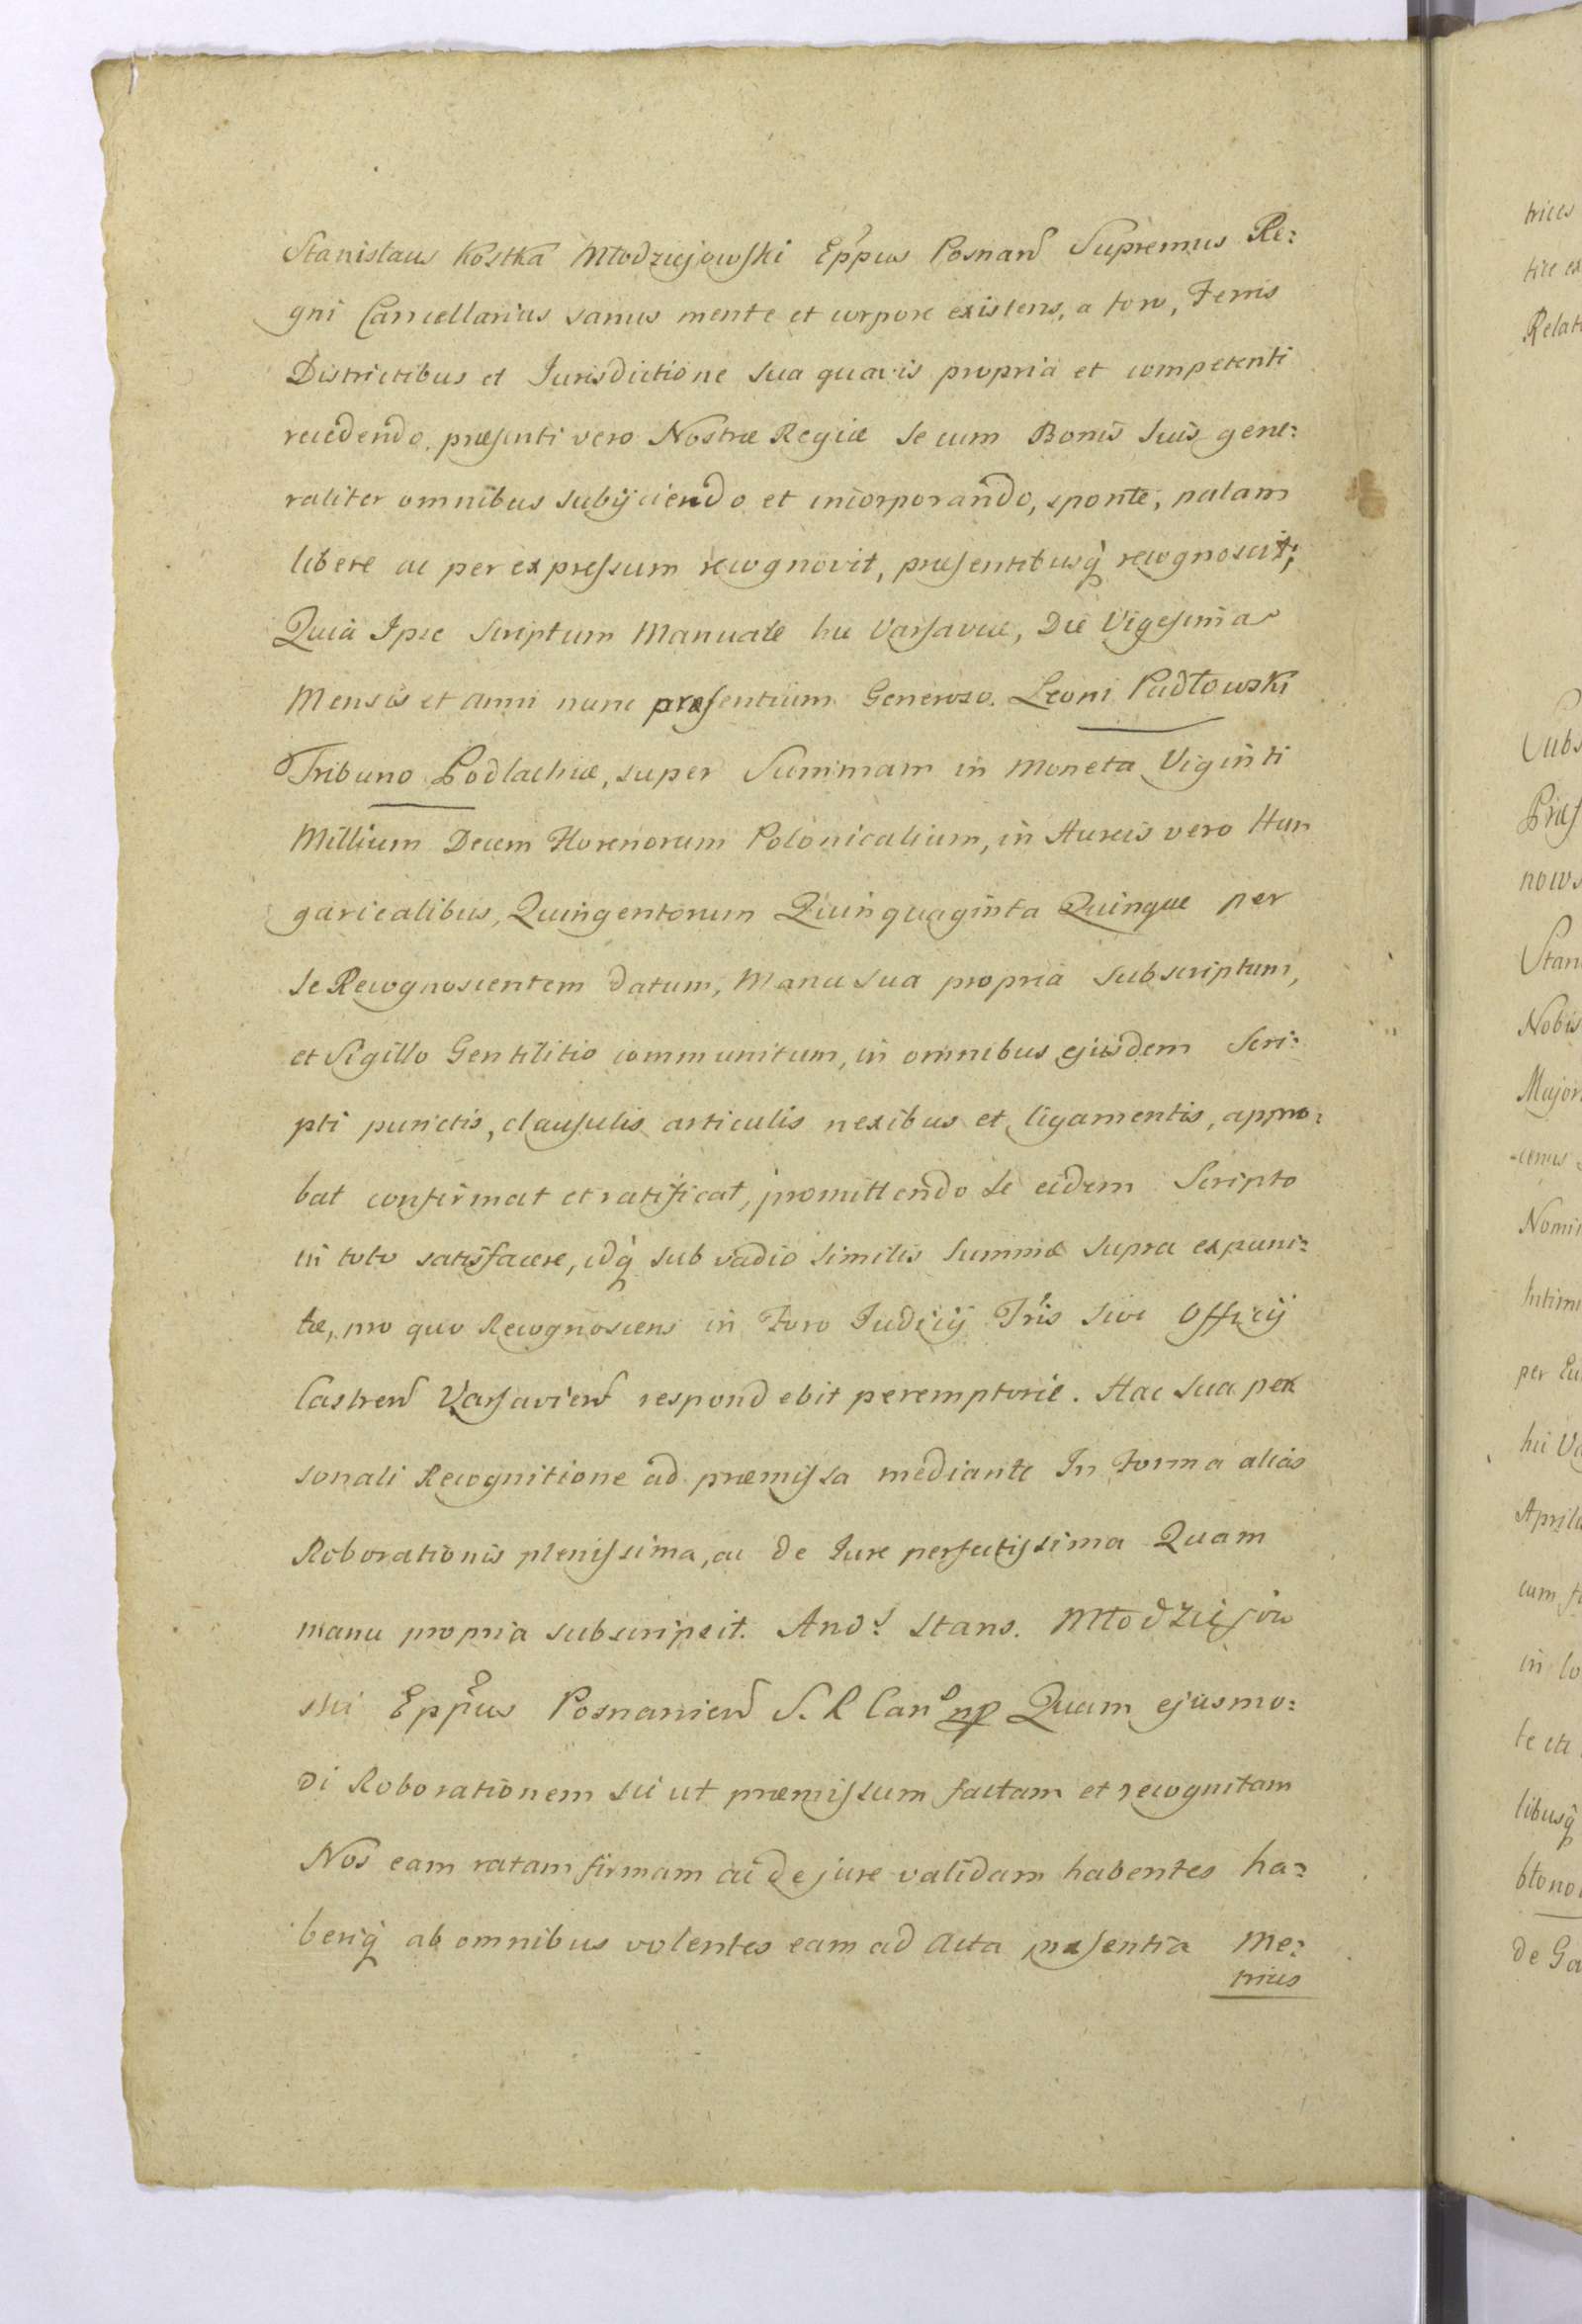 Stanislaus Kostka Młodziejowski Eppus Posnan Supremus Re:
gni Cancellarius sanus mente et corpore existens, a foro, Terris
Districtibus et Jurisdictione sua quavis propria et competenti
recedendo. præsenti vero Nostræ Regiæ se cum Bonis suis gene:
raliter omnibus subijciendo et incorporando, sponte, palam
libere ac per expressum recognovit, præsentibusq recognoscit;
Quia Ipse Scriptum Manuale hic Varsaviæ, Die Vigesima
Mensis et anni nunc præsentium Generoso. Leoni Padłowski
Tribuno Podlachiæ, super Summam in Moneta Viginti
Millium Decem Florenorum Polonicalium, in Aureis vero Hun
garicalibus, Quingentorum Quinquaginta Quinque per
se Recognoscentem datum, Manu sua propria subscriptum,
et Sigillo Gentilitio communitum, in omnibus ejusdem Scri:
pti punctis, clausulis articulis nexibus et ligamentis, appro:
bat confirmat et ratificat, promittendo se eidem Scripto
in toto satisfacere, idq sub vadio similis summæ supra expuni:
tæ, pro quo Recognoscens in Foro Judicij Tris sive Officij
Castren Varsavien respondebit peremptorie. Hac sua per
sonali Recognitione ad præmissa mediante In Forma alias
Roborationis plenissima, ac de Jure perfectissima Quam
manu propria subscripsit. Ands Stans. Młodziejow
ski Eppus Posnanien S. R Can mp Quam ejusmo:
di Roborationem sic ut præmissum factam et recognitam
Nos eam ratam firmam ac de jure validam habentes ha:
beriq ab omnibus volentes eam ad Acta præsentia Me:
trices
trices
Relat
Subs
Præs
nows
Stan
Nobis
Major
Nomi
Intim
per Eu
hic Va
Aprili
cum f
in lo
libusq
de Ga